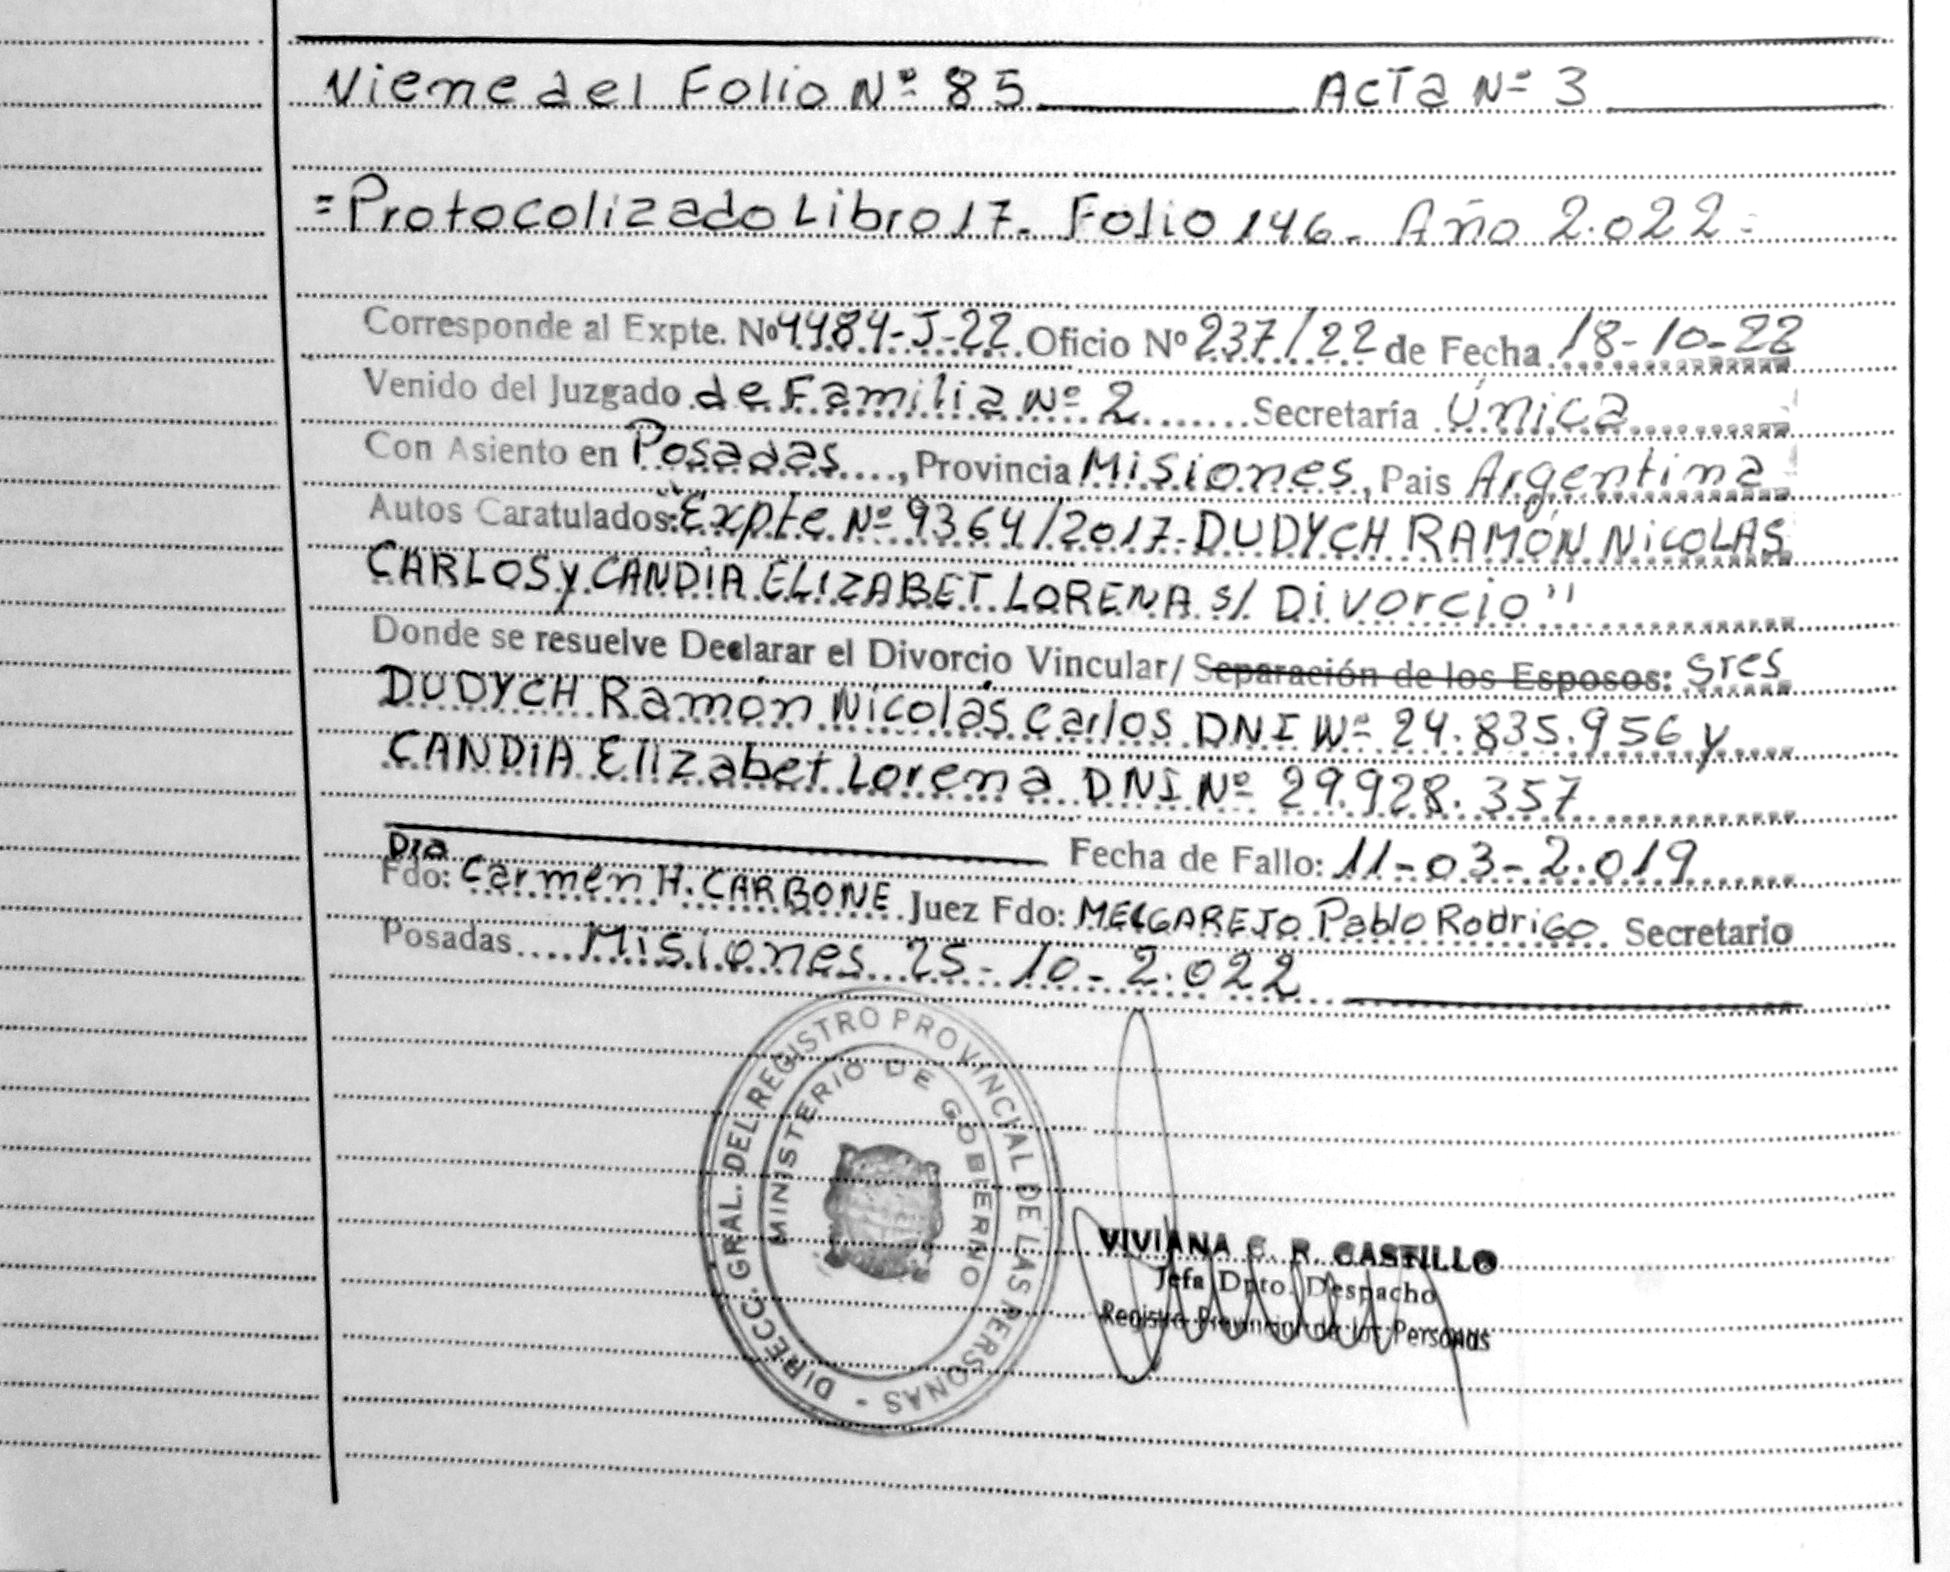 Viene del Folio Nº 85 Acta Nº 3
=Protocolizado Libro 17. Folio 146. Año 2.022=
Corresponde al Expte. Nº 4484-J-22 Oficio Nº 237/22 de Fecha 18-10-22
Venido del Juzgado de Familia Nº 2 Secretaría Única
Con Asiento en Posadas, Provincia Misiones, Pais Argentina
Autos Caratulados: "Expte Nº 9364/2017-DUDYCH RAMÓN NICOLAS
CARLOS y CANDIA ELIZABET LORENA s/ Divorcio"
Donde se resuelve Declarar el Divorcio Vincular/ Separación de los Esposos: Sres
DUDYCH Ramón Nicolás Carlos DNI Nº 24.835.956 y
CANDIA Elizabet Lorena DNI Nº 29.928.357
Fecha de Fallo: 11-03-2.019
Dra
Fdo: Carmen H. CARBONE Juez Fdo: MELGAREJO Pablo Rodrigo Secretario
Posadas Misiones 25-10-2.022
DIRECC. GRAL. DEL REGISTRO PROVINCIAL DE LAS PERSONAS -
MINISTERIO DE GOBIERNO
VIVIANA C. R. CASTILLO
Jefa Dpto. Despacho
Registro Provincial de las Personas